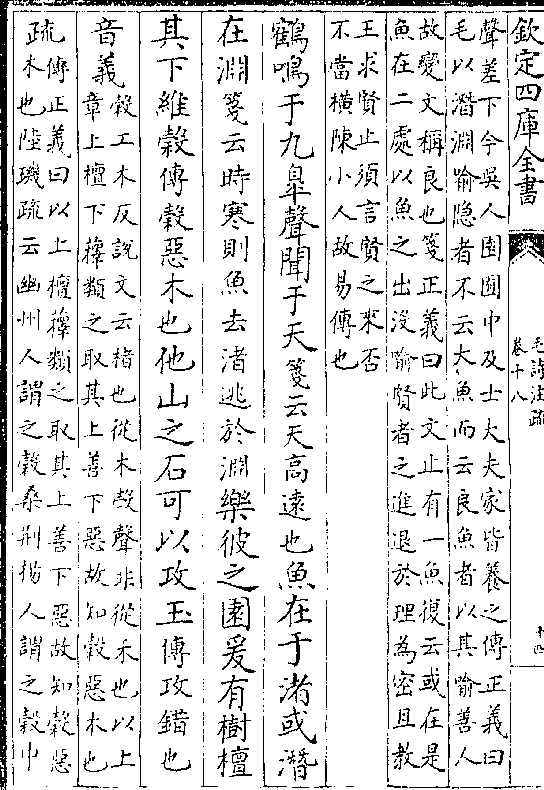 欽定四庫全書
毛詩注疏
卷十八
十四
聲差下今吳人園囿中及士大夫家皆養之傳正義曰
毛以潛淵喻隐者不云大魚而云良魚者以其喻善人
故變文稱良也箋正義曰此文止有一魚復云或在是
魚在二處以魚之出沒喻賢者之進退於理為密且教
王求賢止須言賢之來否
不當横陳小人故易傳也
鶴鳴于九臯聲聞于天箋云天高遠也魚在于渚或潛
在淵箋云時寒則魚去渚逃於淵樂彼之園爰有樹檀
其下維榖傳榖惡木也他山之石可以攻玉傳攻錯也
音義
榖工木反說文云楮也從木㱿聲非從禾也以上
章上檀下蘀類之取其上善下惡故知榖惡木也
疏
傳正義曰以上檀蘀類之取其上善下惡故知榖惡
木也陸璣疏云幽州人謂之榖桑荆揚人謂之榖中